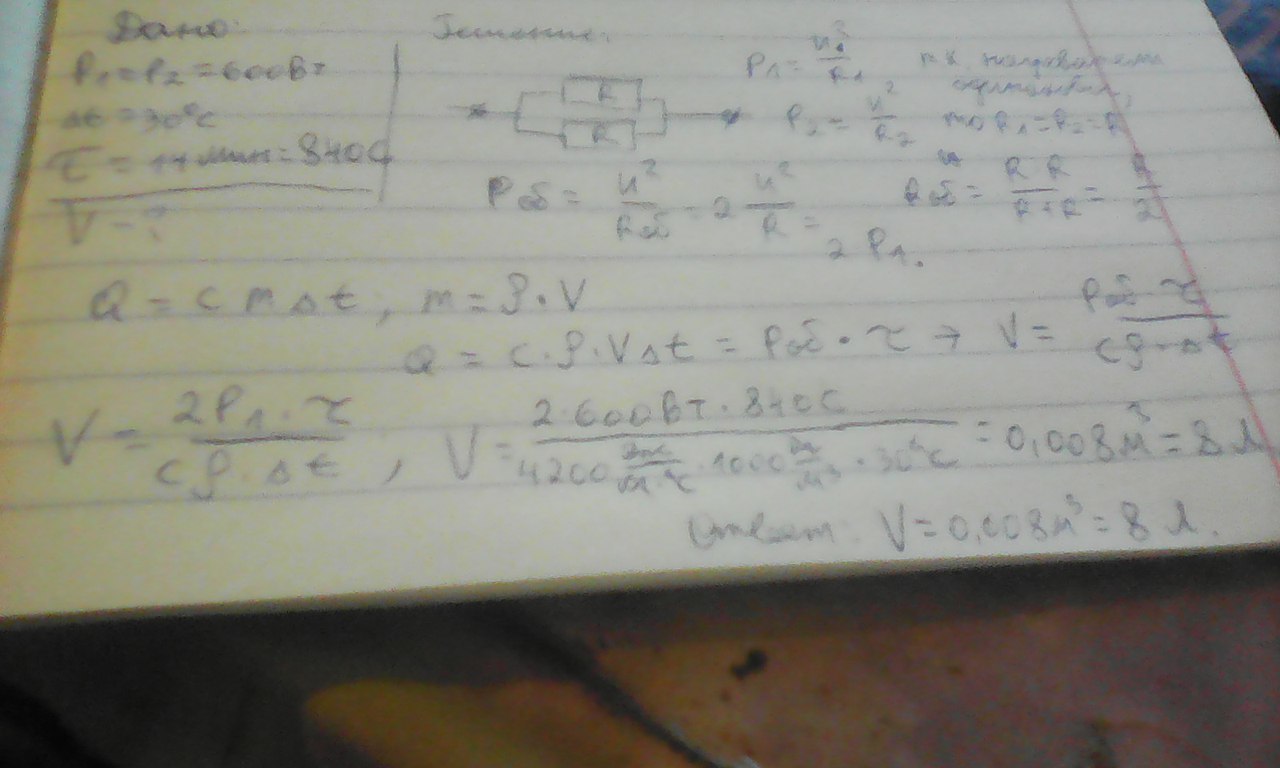 Дано: Решение:
P₁=P₂=600Вт
Δt=30°C
τ=14мин=840с
V-?
R
R
P₁= u²/R₁ т.к. нагреватели
одинаковы,
P₂= u²/R₂ то R₁=R₂=R
и
Pоб= u²/Rоб=2 u²/R= Rоб= R·R/R+R= R/2
2P₁.
Q=cmΔt, m=ρ·V
Q=c·ρ·VΔt=Pоб·τ→ V= Pоб·τ/cρ·Δt
V= 2P₁·τ/cρ·Δt, V= 2·600Вт·840с/4200 Дж/кг°C·1000 кг/м³·30°C=0,008м³=8л
Ответ: V=0,008м³=8л.